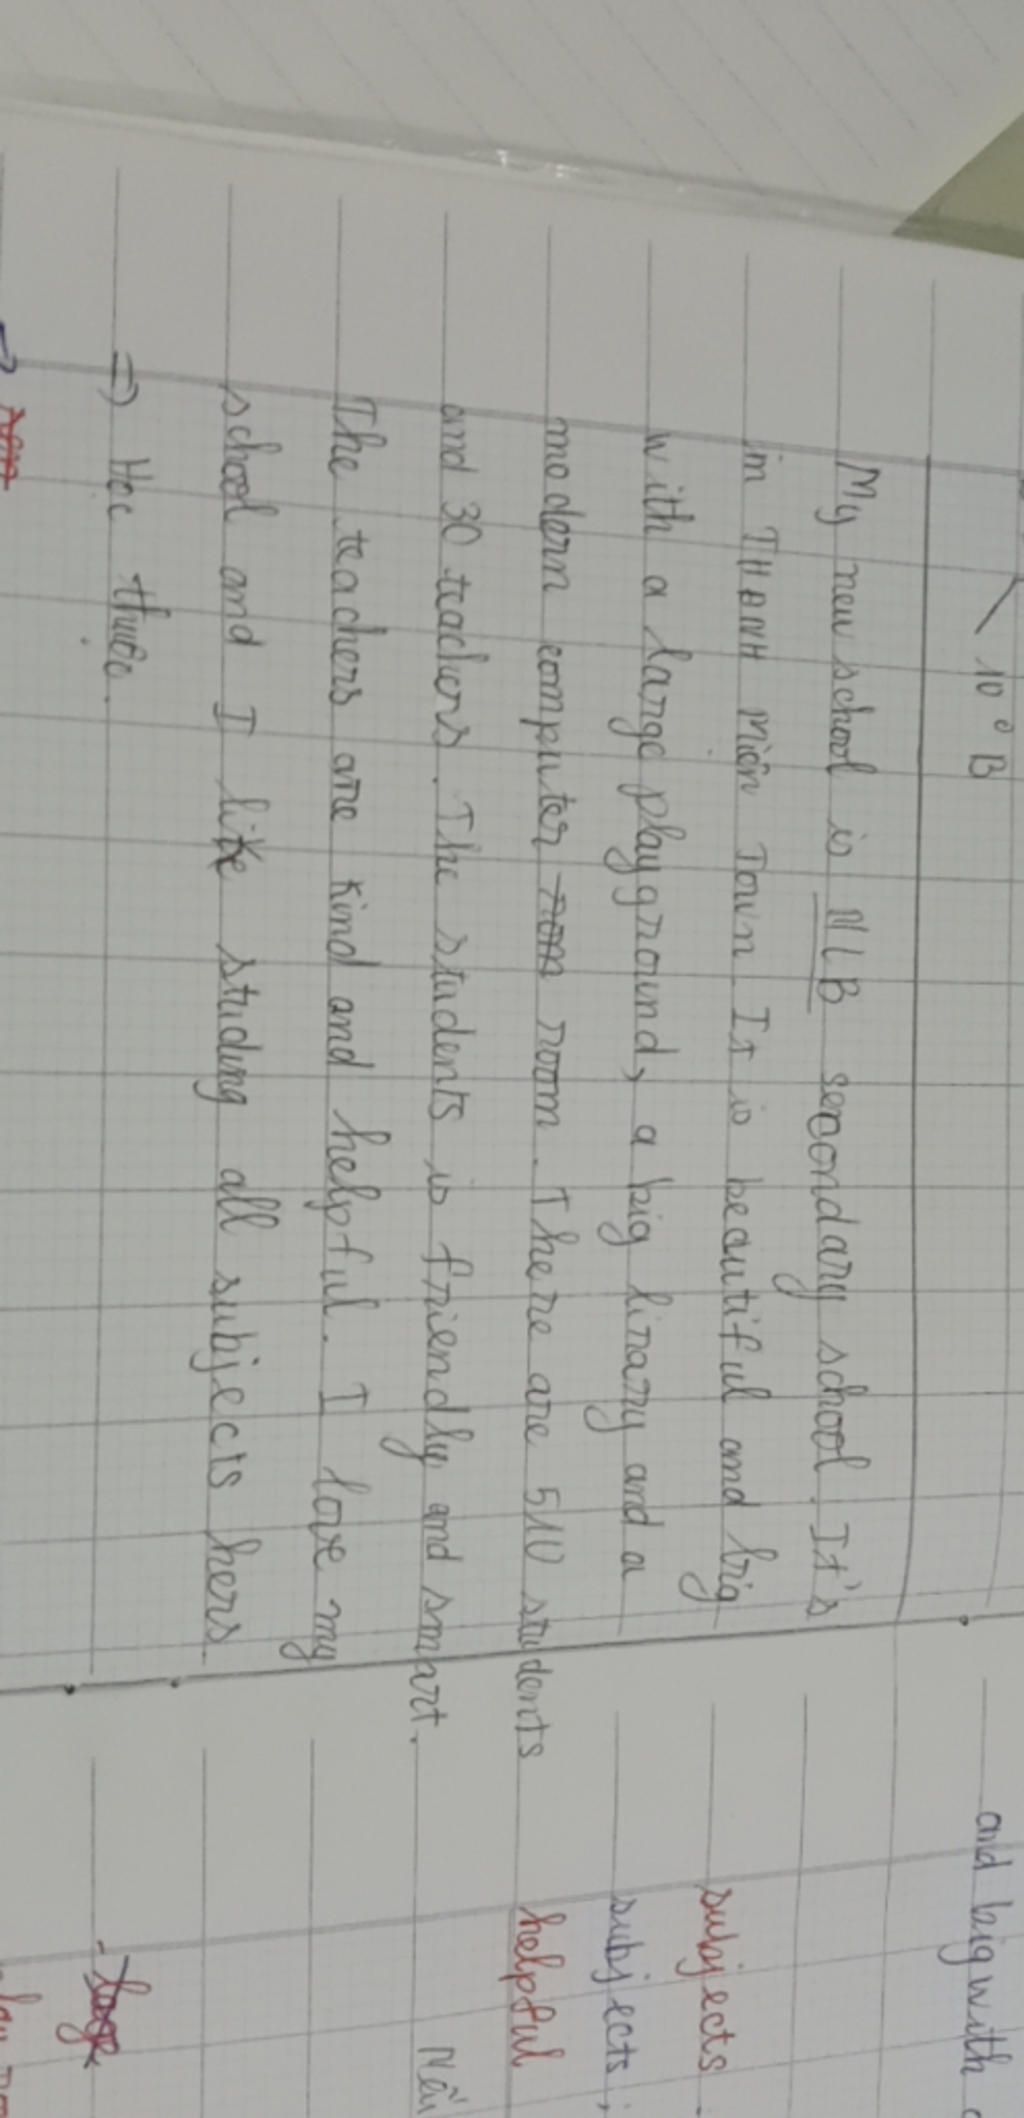 10 ° B
My new school is NLB secondary school. It's
in THANH Miện Town. It is beautiful and big
with a large playground, a big linary and a
modern computer room. There are 510 students
and 30 teachers. The students is friendly and smart.
The teachers are kind and helpful. I love my
school and I like studing all subjects hers.
=) Học thuộc.
and big with
subjects
subjects;
helpful